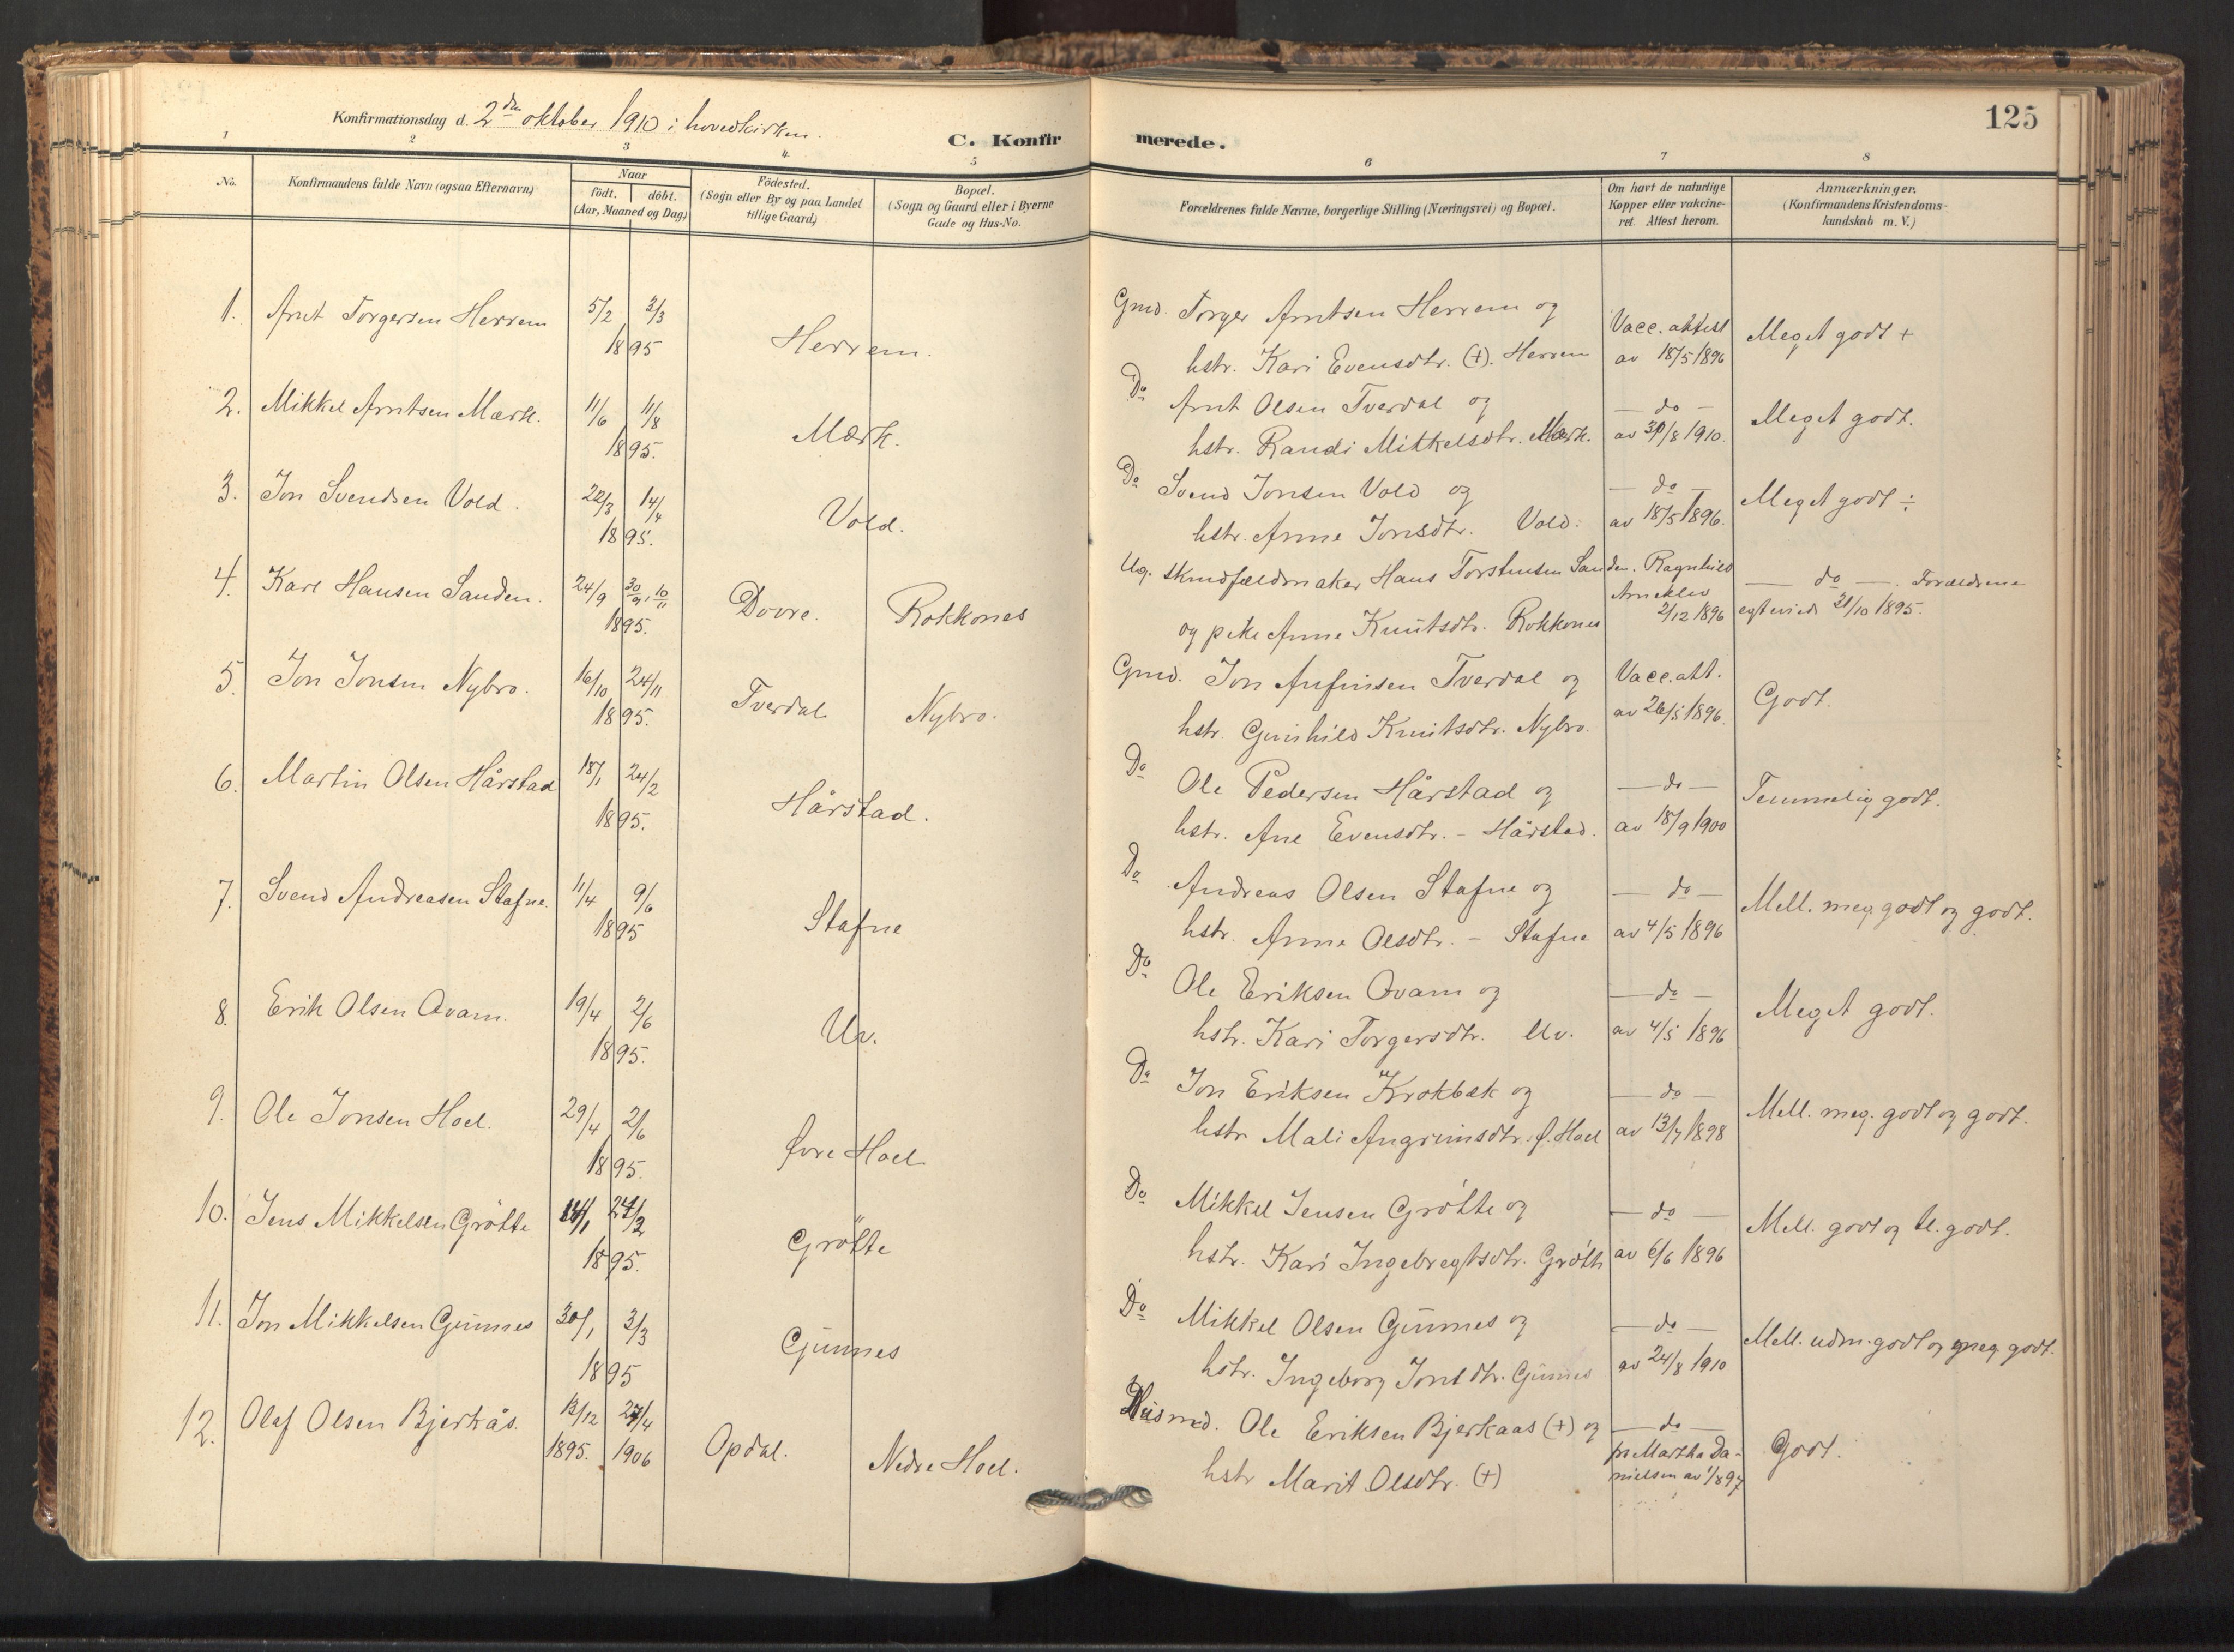 Konfirmationsdag d. 2den oktober 1910 i hovedkirken.
C. Konfirmerede.
125
1 2 3 4 5 6 7 8
No.
Konfirmandens fulde Navn (ogsaa Efternavn)
Naar
födt. döbt.
(Aar, Maaned og Dag)
Födested.
(Sogn eller By og paa Landet
tillige Gaard)
Bopæl.
(Sogn og Gaard eller i Byerne
Gade og Hus-No.
Forældrenes fulde Navne, borgerlige Stilling (Næringsvei) og Bopæl.
Om havt de naturlige
Kopper eller vakcine-
ret. Attest herom.
Anmærkninger.
(Konfirmandens Kristendoms-
kundskab m. V.)
1. Arnt Torgersen Herrem 5/2 3/3
1895
Herrem.
Gmd. Torger Arntsen Herrem og
hstr. Kari Evensdtr. (+). Herrem
Vacc. attest
av 18/5 1896
Meget godt +
2. Mikkel Arntsen Mærk. 11/6 11/8
1895.
Mærk.
Do Arnt Olsen Tverdal og
hstr. Randi Mikkelsdtr. Mærk.
— do —
av 30/8 1910.
Meget godt.
3. Jon Svendsen Vold. 22/3 14/4
1895.
Vold.
Do Svend Jonsen Vold og
hstr. Anne Jonsdtr. Vold.
— do —
av 18/5 1896.
Meget godt ÷
4. Karl Hansen Sanden. 24/9 30/9, 10/11
1895.
Dovre. Rokkones
Ug. skindfældmaker Hans Torstensen Sanden.
og pike Anne Knutsdtr. Rokkones
Ragnhild
Arneklev
2/12 1896
— do —. Forældrene
egteviede 31/10 1895.
5. Jon Jonsen Nybro. 16/10 24/11
1895.
Tverdal Nybro.
Gmd. Jon Arfinsen Tverdal og
hstr. Gunhild Knutsdtr. Nybro.
Vacc. att.
av 26/5 1896.
Godt.
6. Martin Olsen Hårstad 18/1 24/2
1895.
Hårstad.
Do Ole Pedersen Hårstad og
hstr. Ane Evensdtr. – Hårstad.
— do —
av 18/9 1900
Temmelig godt.
7. Svend Andreasen Stafne. 11/4 9/6
1895
Stafne
Do Andreas Olsen Stafne og
hstr. Anne Olsdtr. – Stafne
— do —
av 4/5 1896
Mell. meg. godt og godt.
8. Erik Olsen Qvam. 19/4 2/6
1895.
Uv.
Do Ole Eriksen Qvam og
hstr. Kari Torgersdtr. Uv.
— do —
av 4/5 1896
Meget godt.
9. Ole Jonsen Hoel. 29/4 2/6
1895.
Øvre Hoel
Do Jon Eriksen Krokbæk og
hstr Mali Angrimsdtr. ø. Hoel
— do —
av 13/7 1898
Mell. meg. godt og godt.
10. Jens Mikkelsen Grötte 24/2
1895.
Grötte
Do Mikkel Jensen Grötte og
hstr. Kari Ingebregtsdtr. Grötte
— do —
av 6/6 1896
Mell. godt og tl. godt.
11. Jon Mikkelsen Gunnes 30/1 3/3
1895
Gunnes
Do Mikkel Olsen Gunnes og
hstr. Ingeborg Jonsdtr. Gunnes
— do —
av 24/8 1910
Mell. udm. godt og meg. godt.
12. Olaf Olsen Bjerkås. 13/12 27/4
1895. 1906
Opdal. Nedre Hoel.
Husmd. Ole Eriksen Bjerkaas (+) og
hstr Marit Olsdtr. (+)
— do —
fra Martha Da-
nielsen av 1/8 97
Godt.